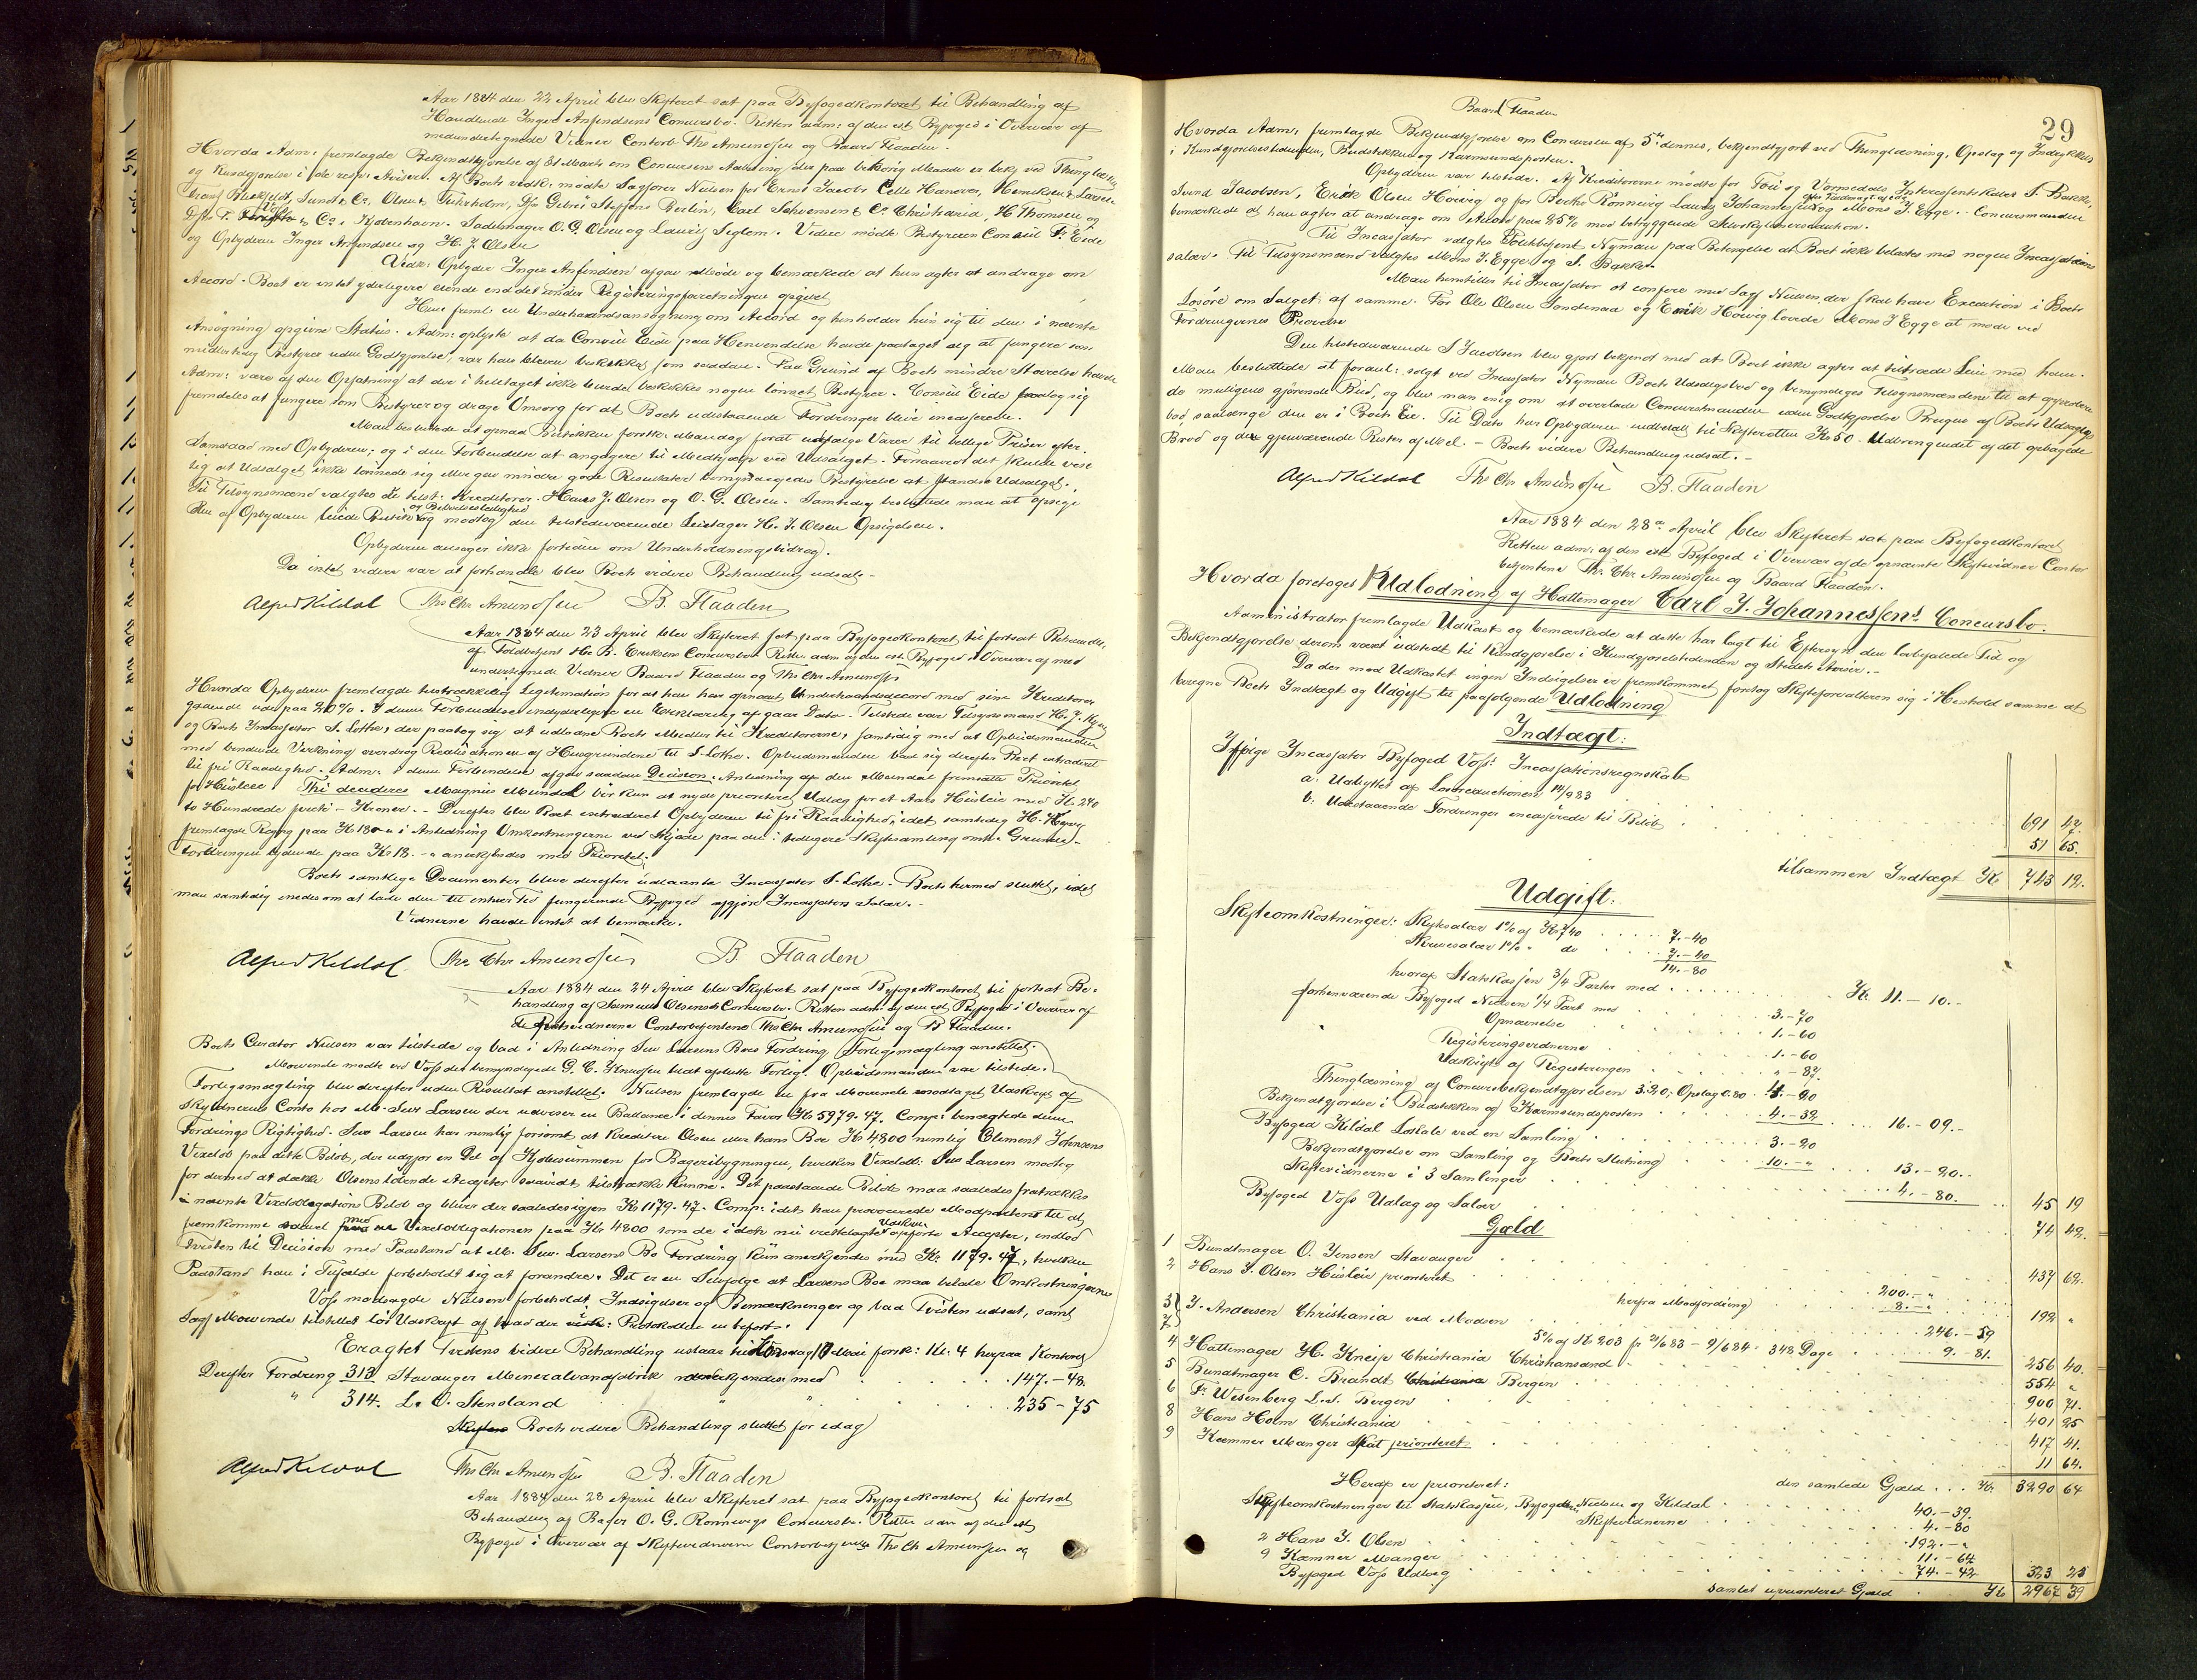 Aar 1884 den 22 April blev Skifteret sat paa Byfogedkontoret til Behandling af
Handlende Inger Anfindsens Concursbo. Retten adm: af den est Byfoged i Overvær af
medundertegnede Vidner Contorb Ths Amundsen og Baard Flaaden.
Hvorda Adm: fremlagde Bekjendtgjørelse af 8 Marts om Concursens Aabning, der paa behørig Maade er bekj. ved Thinglæsn
og Kundgjørelse i de resp: Aviser. Af Boets vedk: mødte Sagfører Nielsen for Ernst Jacobs Celle Hanover, Henriksen & Larsen
Sundt & Co, Olsen & Fuhrholm, Gebrü Steffens Berlin, Carl Schwensen & Co Christiania, H Thomsen og
& Co i Kjøbenhavn. Sadelmager O. G. Olsen og Lauritz Seglem. Videre mødte Bestyreren Consul P. Eide
og Opbyderen Inger Anfindsen og H. J. Olsen
Vedk: Opbyder Inger Anfindsen afgav Møde og bemærkede at hun agter at andrage om
Accord. Boet er intet yderligere eiende end det under Registeringsforretningen opgivet
Hun freml: en Underhaandsansøgning om Accord og henholder hun sig til den i nævnte
Ansøgning opgivne Status. Adm: oplyste at da Consul Eide paa Henvendelse havde paataget sig at fungere som
midlertidig Bestyrer uden Godtgjørelse, var han bleven beskikket som saadan. Paa Grund af Boets mindre Størrelse havde
Adm: være af den Opfatning at der i heletaget ikke burde beskikkes nogen lønnet Bestyrer. Consul Eide paatog sig
fremdeles at fungere som Bestyrer og drage Omsorg for at Boets udestaaende Fordringer blive incasserede.
Man besluttede at opnaa Butikken førstk: Mandag forat udsælge Varer til billige Priser efter
Samraad med Opbyderen; og i den Forbindelse at engagere til Medhjælp ved Udsalget. Forsaavidt det skulde vise
sig at Udsalget ikke lønnede sig eller gav mindre gode Resultater bemyndigedes Bestyrelse at standse Udsalget.
Til Tilsynsmænd valgtes de tilst: Kreditorer Hans J. Olsen og O. G. Olsen. Samtidig besluttede man at opsige
den af Opbyderen leiede Butik og Beboelsesleilighed og modtog den tilstedeværende Leietager H. J. Olsen Opsigelsen.
Opbyderen ansøger ikke fortiden om Underholdningsbidrag.
Da intet videre var at forhandle blev Boets videre Behandling udsat.-
Alfred Kildal Ths Chr Amundsen B. Flaaden
Aar 1884 den 23 April blev Skifteret sat paa Byfogedkontoret til fortsat Behandl.
af Toldbetjent He B. Eriksens Concursbo. Rett: adm af den est. Byfoged i Overvær af med
undertegnede Vidner Baard Flaaden og Ths Chr Amundsen
Hvorda Opbyderen fremlagde tilstrækkelig Legitimation for at han har opnaaet Underhaandsaccord med sine Kreditorer
gaaende ud paa 20%. I denne Forbindelse en Erklæring af gaar Dato. Tilstede var Tilsynsmand H. J.
og Boets Incassator S. Lothe, der paatog sig at udlodne Boets Midler til Kreditorerne, samtidig med at Opbudsmanden
med bindende Virkning overdrog Realisationen af Husgrundene til S. Lothe. Opbudsmanden bad sig derefter Boet extraderet
til fri Raadighed. Adm: i denne Forbindelse afgav saadan Decision. Anledning af den Mundal fremsatte Prioritet
for Husleie. Thi decideres Magnus Mundal bør kun at nyde prioriteret Udlæg for et Aars Husleie med K 240
to Hundrede firti - Kroner. - Derefter blev Boet extraderet Opbyderen til fri Raadighed, idet samtidig H.
fremlagde Regng paa Kr 18 - " i Anledning Omkostningerne ved Skjøde paa den i tidligere Skiftesamling omh: Grunde.
Fordringen lydende paa Kr 18. - " anerkjendes med Prioritet.
Boets samtlige Documenter bleve derefter udlaante Incassator S. Lothe. Boets hermed sluttet, idet
man samtidig enedes om at lade den til enhver Tid fungerende Byfoged afgjøre Incassators Salær. -
Vidnerne havde intet at bemærke.
Alfred Kildal. Ths. Chr Amundsen B Flaaden
Aar 1884 den 24 April blev Skifteret sat paa Byfogedkontoret til fortsat Be-
handling af Samuel Olsens Concursbo. Retten adm. af den est Byfoged i Overvær af
de Retsvidnerne Contorbetjentene Ths Chr Amundsen og B Flaaden.
Boets Curator Nielsen var tilstede og bad i Anledning Sew Larsens Boes Fordring Forligsmægling anstillet.
Movende mødte ved Voss det bemyndigede G. C. Knudsen bedt afslutte Forlig. Opbudsmanden var tilstede.
Forligsmægling blev derefter uden Resultat anstillet. Nielsen fremlagde en fra Movende modtaget Udskrift af
Skyldnerens Conto hos M. Sew Larsen der udviser en Ballance i dennes Favør Kr 5979. 47. Comp: benægtede denne
Fordrings Rigtighed. Sew Larsen har nemlig forsømt at kreditere Olsen eller hans Bo Kr 4800 nemlig Element Johnsens
Vexelob paa dette Beløb, der udgjør en Del af Kjøbesummen for Bageribygningen, hvilken Vexelobl: Sew Larsen modtog
for dermed at dække Olsens løbende Accepter saavidt tilstrække kunne. Det paastaaede Beløb maa saaledes fratrækkes
i nævnte Vexelobligations Beløb og bliver der saaledes igjen Kr 1179. 47. Comp: idet han provocerede Modparten til at
fremkomme saavel med Vexelobligationen paa Kr 4800 som de i dets nu vedtagte opførte Accepter, indlod
Tvisten til Decision med Paastand at M. Sew. Larsens Bo Fordring kun anerkjendes med Kr. 1179. 47, hvilken
Paastand han i Tilfælde forbeholdt sig at forandre. Det er en Selvfølge at Larsens Boe maa betale Omkostningerne
Voss modsagde Nielsen forbeholdt Indsigelser og Bemærkninger og bad Tvisten udsat, samt
Sagf Movende tilstillet løs Udskrift af hvad der i Protokollen er tilført.
Eragtet Tvistens videre Behandling udstaar til Lørsdag 10 Mai førstk: Kl. 4 herpaa Kontoret
Derefter Fordring 313 Stavanger Mineralvandfabrik anerkjendes med . . . 147. - 48.
" 314. L. O. Stensland " " . . . 235 - 75
Boets videre Behandling sluttet for idag
Alfred Kildal Ths Chr Amundsen B. Flaaden
Aar 1884 den 28 April blev Skifteret sat paa Byfogedkontoret til fortsat
Behandling af Bager O. G. Rønnevigs Concursbo. Retten adm af den est
Byfoged i Overvær af Skiftevidnerne Contorbetjentene Ths Ch Amundsen og
29
Baard Flaaden
Hvorda Adm: fremlagde Bekjendtgjørelse om Concursen af 5te dennes, bekjendtgjort ved Thinglæsning, Opslag og Indrykkels
i Kundgjørelsestidenden, Budstikken og Karmsundsposten.
Opbyderen var tilstede. Af Kreditorerne mødte for Foie og Vormedals Interessentskabet S. Bakke,
Svend Jacobsen, Erik Olsen Høivig og for Berthe Rønnevig Lauritz Johannesen og Mons J. Egge. - Concursmanden
bemærkede at han agter at andrage om Accord paa 25% mod betryggende Selvskyldnercaution.
Til Incassator valgtes Politibetjent Nyman paa Betingelse at Boet ikke belastes med nogen Incassations
salær. Til Tilsynsmænd valgtes Mons J. Egge og S. Bakke.
Man henstiller til Incassator at confere med Sagf Nielsen, der skal have Execution i Boets
Løsøre om Salget af samme. For Ole Olsen Søndenaa og Erik Høivig lovede Mons J Egge at møde ved
Fordringernes Prøvelse
Den tilstedeværende S Jacobsen blev gjort bekjendt med at Boet ikke agter at tiltræde Leie med ham.
Man besluttede at foraut: solgt ved Incassator Nyman Boets Udsalgsbod og bemyndiges Tilsynsmændene til at approbere
de muligens gjørende Bud, og blev man enig om at overlade Concursmanden uden Godtgjørelse Brugen af Boets Udsalgs
bod, saalænge den er i Boets Eie. Til Dato har Opbyderen indbetalt til Skifteretten Kr 50. Udbringendet af det opbagede
Brød og de gjenværende Rester af Mel. - Boets videre Behandling udsat. -
Alfred Kildal Ths Chr Amundsen B. Flaaden
Aar 1884 den 28de April blev Skifteret sat paa Byfogedkontoret
Retten adm: af den est Byfoged i Overvær af de opnævnte Skiftevidner Contor
betjentene Th. Chr Amundsen og Baard Flaaden.
Hvorda foretoges Udlodning af Hattemager Carl J. Johannessens Concursbo.
Administrator fremlagde Udkast og bemærkede at dette har lagt til Eftersyn den lovbefalede Tid og
Bekjendtgjørelse derom været udstedt til Kundgjørelse i Kundgjørelsestidenden og Stedets Aviser. -
Da der mod Udkastet ingen Indsigelser er fremkommet, foretog Skifteforvalteren sig i Henhold samme at
beregne Boets Indtægt og Udgift til paafølgende Udlodning
Indtægt:
Ifølge Incassator Byfoged Voss' Incassationsregnskab
a: Udbyttet af Løsøreauctionen 14/9 83 . . . 691 47.
b: Udestaaende Fordringer incasserede til Beløb . . . 51 65.
tilsammen Indtægt Kr 743 12.
Udgift:
Skifteomkostninger: Skiftesalær 1% af Kr 740 . . . 7. - 40
Skrivesalær 1% " do . . . 7. - 40
14. - 80
hvoraf Statskassen 3/4 Parter med . . . Kr. 11. - 10. -
forhenværende Byfoged Nielsen 1/4 Part med . . . 3. - 70
Opnævnelse . . . 1. - 60
Registeringsvidnerne . . . 1. - 60
Udskrift af Registeringen . . . " - 87.
Thinglæsning af Concursbekjendtgjørelsen 3.20; Opslag 0.80 . 4. - 00
Bekjendtgjørelse i Budstikken og Karmsundsposten . . . 4. - 32 . . . 16. - 09. -
Byfoged Kildal Lokale ved en Samling . . . 3. - 20
Bekjendtgjørelse om Samling og Boets Slutning . . . 10. - " . . . 13. - 20. -
Skiftevidnerne i 3 Samlinger . . . 4. - 80. . . . 45 19
Byfoged Voss Udlæg og Salær . . . 74 42.
Gjæld
1 Bundtmager O. Jensen Stavanger . . . 437 62.
2 Hans J. Olsen Husleie prioriteret . . . 200. - "
herfra Modfordring . . . 8. - " . . . 192 "
3} J. Andersen Christiania ved Madsen . . . 246. - 59
7} 5% af Kr 203 fr 21/6 83 - 9/6 84. 348 Dage . . . 9. - 81. 256 40.
4 Hattemager H. Kneip Christiania Christiansand . . . 554 "
5 Bundtmager C. Brandt Christiania Bergen . . . 900 71.
6 Fr Wesenberg L.S. Bergen . . . 401 25
8 Hans Holm Christiania . . . 417 41.
9 Kæmner Manger Skat prioriteret . . . 11 64.
den samlede Gjæld . . . Kr. 3290 64
Heraf er prioriteret:
Skifteomkostninger til Statskassen, Byfogden Nielsen og Kildal . . . 40. - 39.
Skiftevidnerne . . . 4. - 80
2 Hans J. Olsen . . . 192. - "
9 Kæmner Manger . . . 11. - 64
Byfoged Voss Udlæg . . . 74. - 42 323 25
samlet uprioriteret Gjæld . Kr 2967 39